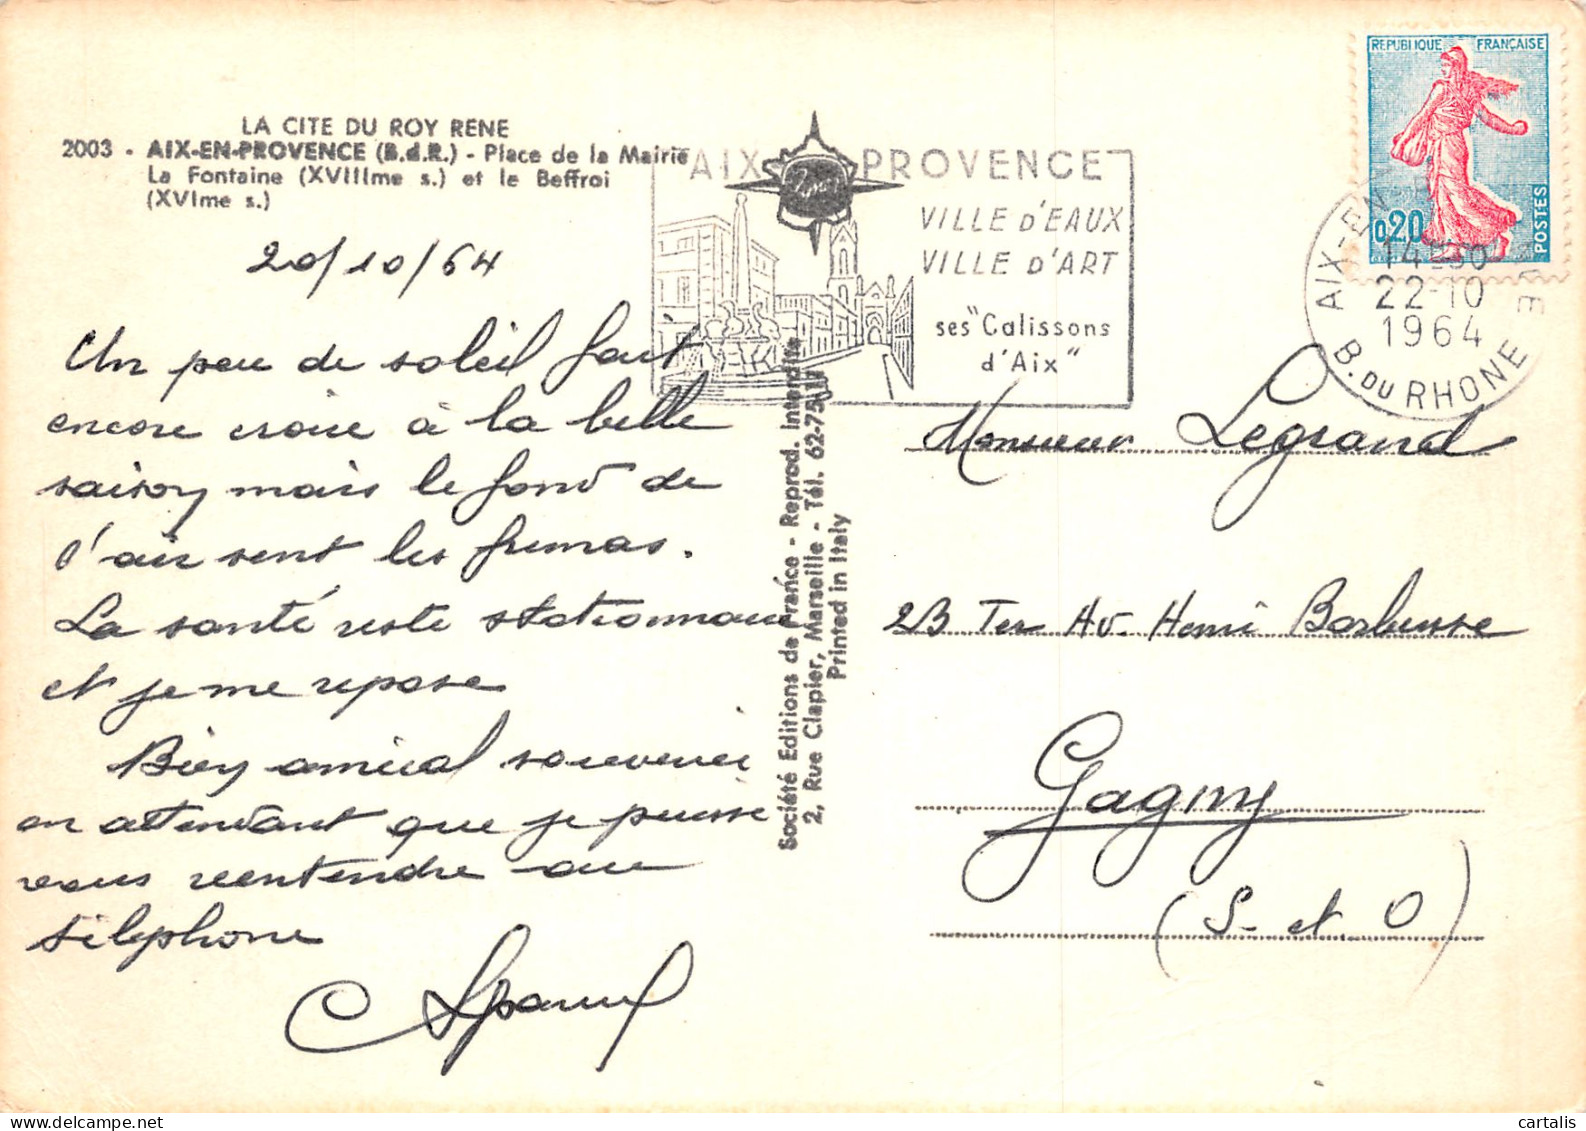 LA CITE DU ROY RENE
2003 - AIX-EN-PROVENCE (B.d.R.) - Place de la Mairie
La Fontaine (XVIIIme s.) et le Beffroi
(XVIme s.)
20/10/64
Un peu de soleil fait
encore croire à la belle
saison mais le fond de
l'air sent les frimas.
La santé reste stationnaire
et je me repose
Bien amical souvenir
en attendant que je puisse
vous réentendre au
téléphone
Société Editions de France - Reprod. Interdite
2, Rue Clapier, Marseille - Tél. 62-75-17
Printed in Italy
AIX-EN-PROVENCE
VILLE D'EAUX
VILLE D'ART
ses "Calissons
d'Aix"
REPUBLIQUE FRANÇAISE
0,20
POSTES
AIX-EN-PROVENCE
14H30
22-10
1964
B. DU RHONE
Monsieur Legrand
23 Ter Av. Henri Barbusse
Gagny
(S. et O)
cartalis